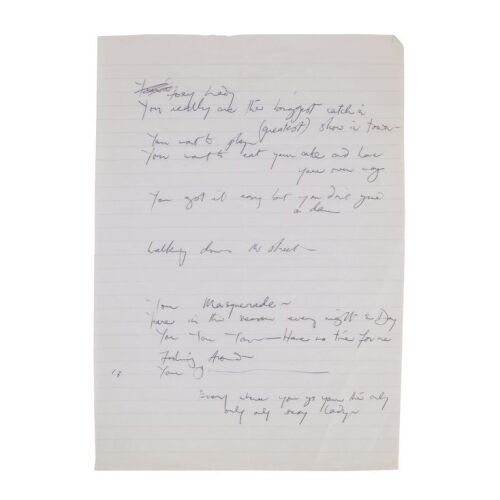 Foxy Lady
You really are the biggest catch in
(greatest) show in town
You want to play
You want to eat your cake and have
your own way
You got it easy but you don't give
a damn
Walking down the street
Your Masquerade
the reason every night & Day
You You You Have no time for me
Fooling Around
You
Every where you go your the only
only only sexy Lady